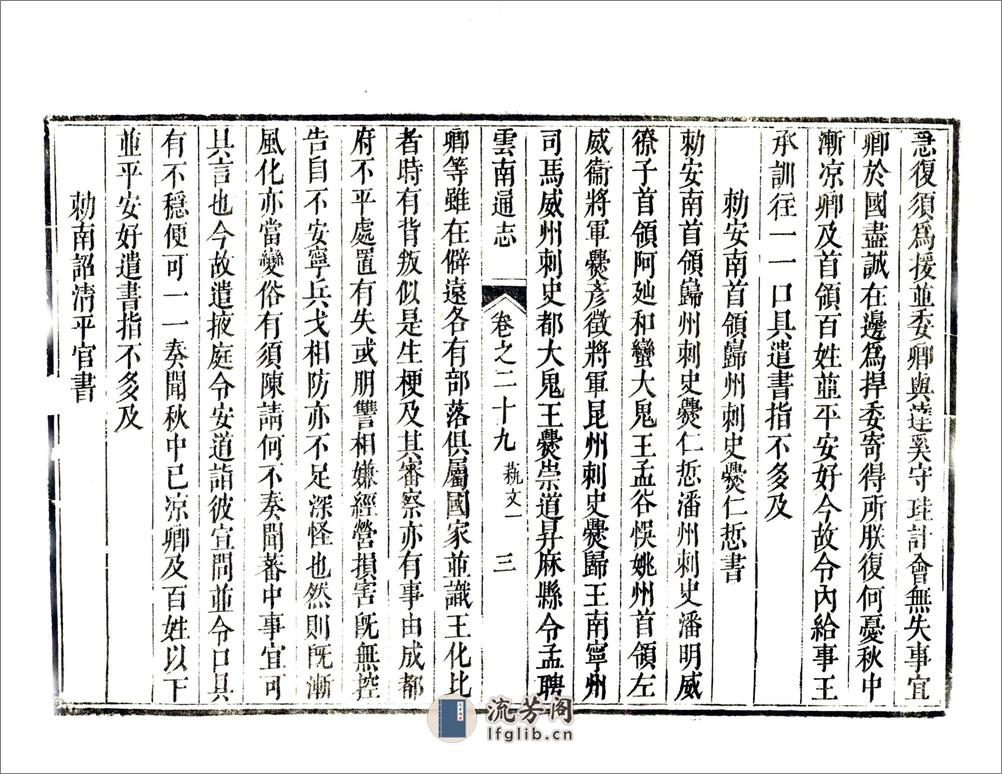 急復須爲援並委卿與逹奚守珪計會無失事宜
卿於國盡誠在邊爲捍委寄得所朕復何憂秋中
漸凉卿及首領百姓並平安好今故令內給事王
承訓往一一口具遣書指不多及
勅安南首領歸州刺史爨仁悊書
勅安南首領歸州刺史爨仁悊潘州刺史潘明威
獠子首領阿迆和蠻大鬼王孟谷悞姚州首領左
威衞將軍爨彥徵將軍昆州刺史爨歸王南寧州
司馬威州刺史都大鬼王爨崇道昇麻縣令孟聘
雲南通志 卷之二十九 蓺文一 三
卿等雖在僻遠各有部落俱屬國家並識王化比
者時有背叛似是生梗及其審察亦有事由成都
府不平處置有失或朋讐相嫌經營損害旣無控
告自不安寧兵戈相防亦不足深怪也然則旣漸
風化亦當變俗有須陳請何不奏聞蕃中事宜可
具言也今故遣掖庭令安道詣彼宜問並令口具
有不穩便可一一奏聞秋中已凉卿及百姓以下
並平安好遣書指不多及
勅南詔淸平官書
流芳阁
lfglib.cn